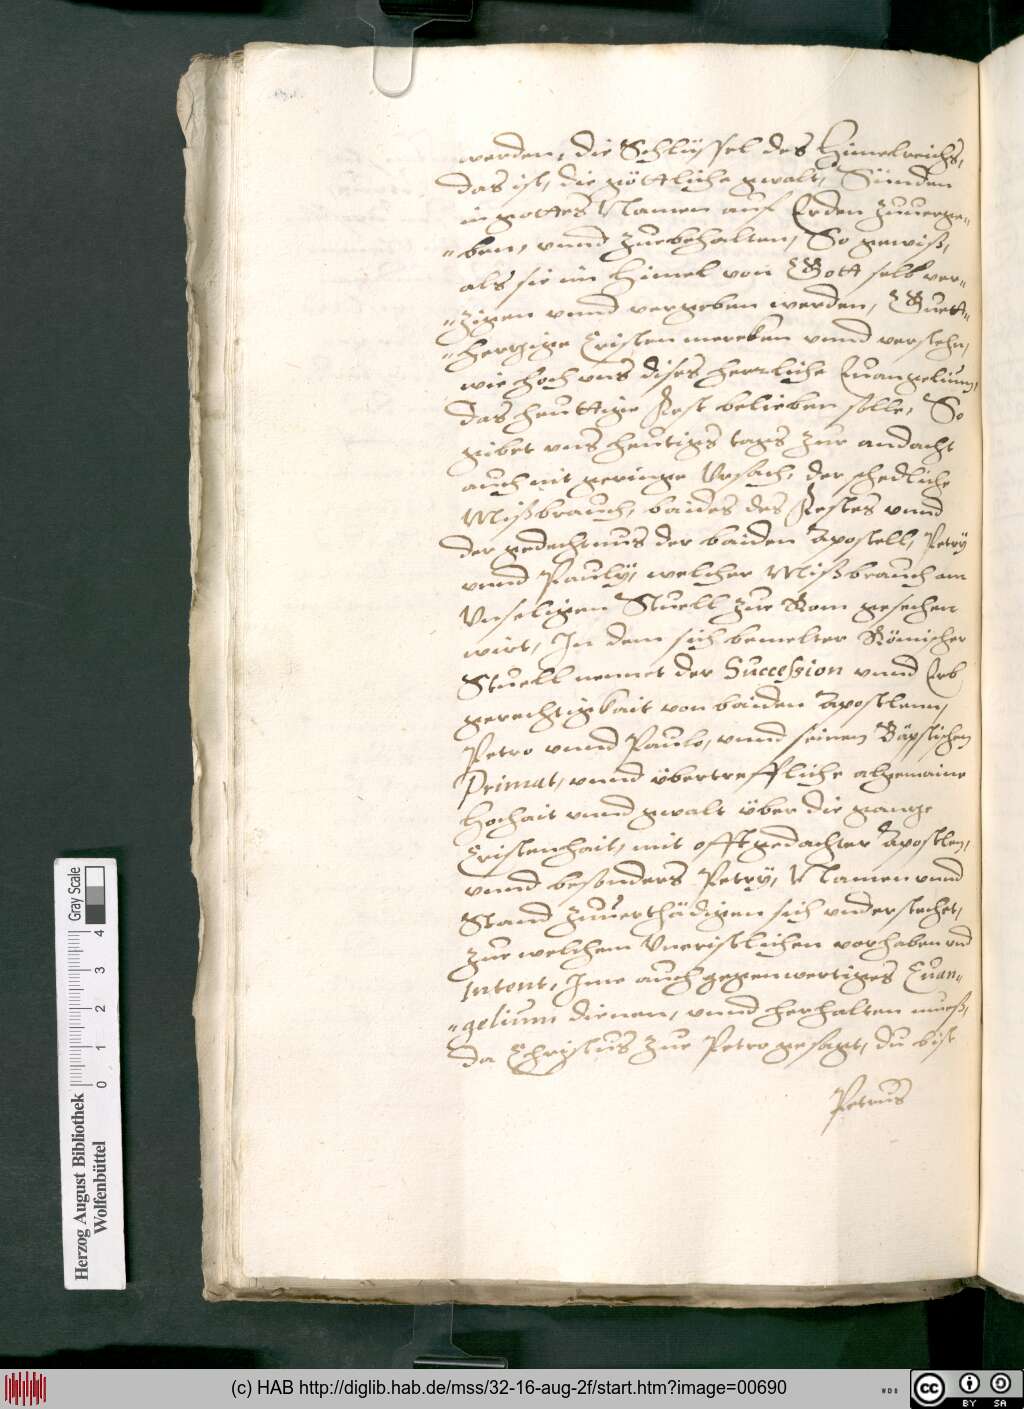 werden, die Schlüssel des Himelreichs,
das ist, die göttliche gwalt, Sünden
in gottes Namen auf Erden zuuerge„
„ben, vnnd zuebehalten, So gewiß,
als sie im Himel von Gott selb ver„
„zigen vnnd vergeben werden, Guett„
„herzige Cristen mercken vnnd verstehn,
wie hoch vns dises herrliche Euangelium,
das heuttige Fest belieben solle, So
gibet vns heutigs tags zur andacht
auch nit geringe Vrsach, der schedliche
Mißbrauch, baides des Festes vnnd
der gedechtnus der baiden Apostell, Petrÿ
vnnd Paulÿ, welcher Mißbrauch am
Vnseligen Stuell zue Rom gesechen
wirt, In dem sich bemelter Römischer
Stuell nennet der Succession vnnd Erb
gerechtigkait von baiden Apostlenn,
Petro vnnd Paulo, vnnd seinen Bäpstischen
Primat, vnnd übertreffliche algemaine
Hochait vnnd gwalt über die ganze
Cristenhait, mit offtgedachter Apostlen,
vnnd besonders Petrÿ, Namen vnnd
Stand zuuerthädigen sich vnderstehet,
zue welchem Vncristlichen vorhaben vnd
Intent, Ime auch gegenwertiges Euan„
„gelium dienen, vnnd herhalten mueß,
da Christus zue Petro gesagt, du bist
Petrus
Herzog August Bibliothek
Wolfenbüttel
0 1 2 3 4
Gray Scale
(c) HAB http://diglib.hab.de/mss/32-16-aug-2f/start.htm?image=00690
WDB
cc BY SA